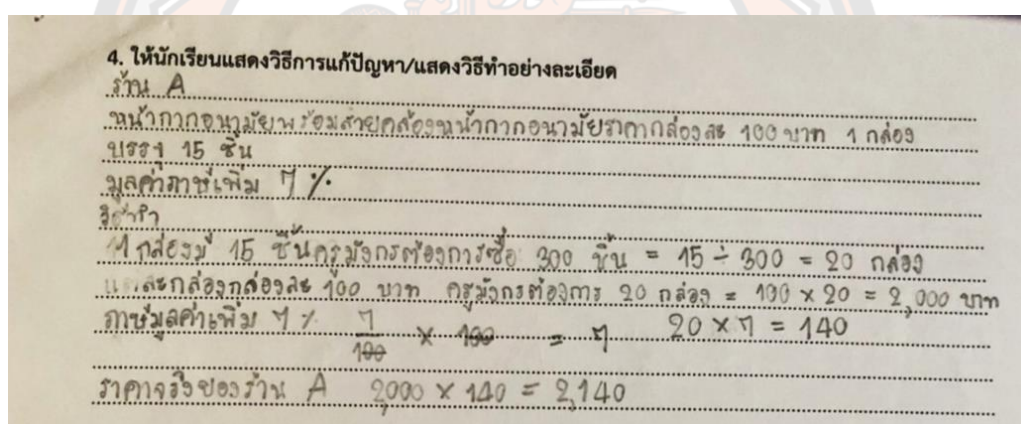 4. ให้นักเรียนแสดงวิธีการแก้ปัญหา/แสดงวิธีทำอย่างละเอียด
ร้าน A
หน้ากากอนามัยพร้อมสายคล้องหน้ากากอนามัยราคากล่องละ 100 บาท 1 กล่อง
บรรจุ 15 ชิ้น
มูลค่าภาษีเพิ่ม 7 %
วิธีทำ
1 กล่องมี 15 ชิ้นครูมังกรต้องการซื้อ 300 ชิ้น = 15 ÷ 300 = 20 กล่อง
แต่ละกล่องกล่องละ 100 บาท ครูมังกรต้องการ 20 กล่อง = 100 × 20 = 2,000 บาท
ภาษีมูลค่าเพิ่ม 7 % 7/100 × 100 = 7 20 × 7 = 140
ราคาจริงของร้าน A 2,000 × 140 = 2,140